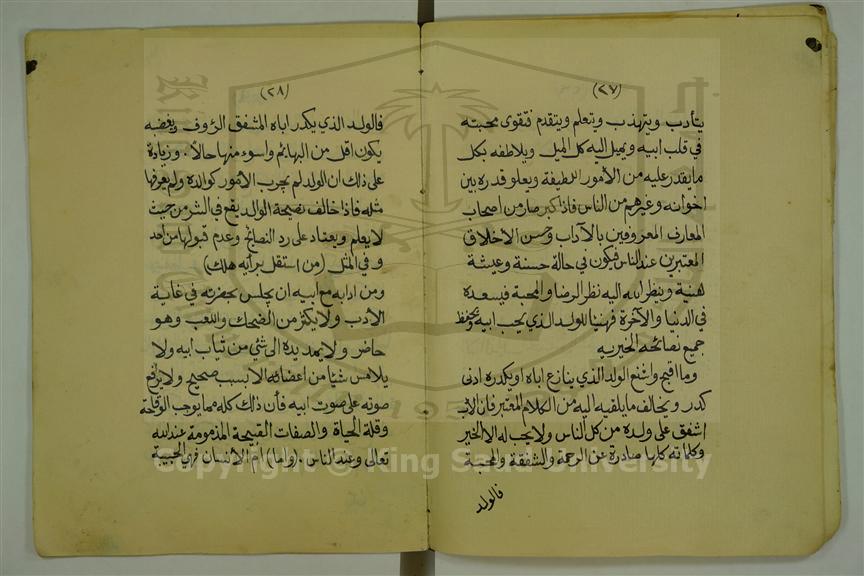 (٢٧)
يتأدب ويتهذب ويتعلم ويتقدم فتقوى محبته
في قلب ابيه ويميل اليه كل الميل ويلاطفه بكل
ما يقدر عليه من الأمور اللطيفة ويعلو قدره بين
اخوانه وغيرهم من الناس فاذا كبر صار من اصحاب
المعارف المعروفين بالآداب وحسن الاخلاق
المعتبرين عند الناس فيكون في حالة حسنة وعيشة
هنية وينظر الله اليه نظر الرضا والمحبة فيسعده
في الدنيا والآخرة فهنيئا للولد الذي يحب ابيه ويحفظ
جميع نصائحه الخيريه
وما اقبح واشنع الولد الذي ينازع اباه او يكدره ادنى
كدر ويخالف ما يلقيه اليه من الكلام المعتبر فان الأب
اشفق على ولده من كل الناس ولا يحب له الا الخير
وكلماته كلها صادرة عن الرحمة والشفقة والمحبة
فالولد
(٢٨)
فالولد الذي يكدر اباه المشفق الرؤوف ويغضبه
يكون اقل من البهائم واسوء منها حالاً . وزيادة
على ذلك ان الولد لم يجرب الأمور كوالده ولم يعرفها
مثله فاذا خالف نصيحة الوالد يقع في الشر من حيث
لا يعلم ويعتاد على رد النصائح وعدم قبولها من احد
وفي المثل (من استقل برأيه هلك)
ومن ادابه مع ابيه ان يجلس بحضرته في غاية
الأدب ولا يكثر من الضحك واللعب وهو
حاضر ولا يمد يده الى شئي من ثياب ابيه ولا
يلامس شيئا من اعضائه الا بسبب صحيح ولا يرفع
صوته على صوت ابيه فأن ذلك كله مما يوجب الوقاحة
وقلة الحياة والصفات القبيحة المذمومة عند الله
تعالى وعند الناس . (واما) ام الأنسان فهي الحبيبة
Copyright © King Saud University